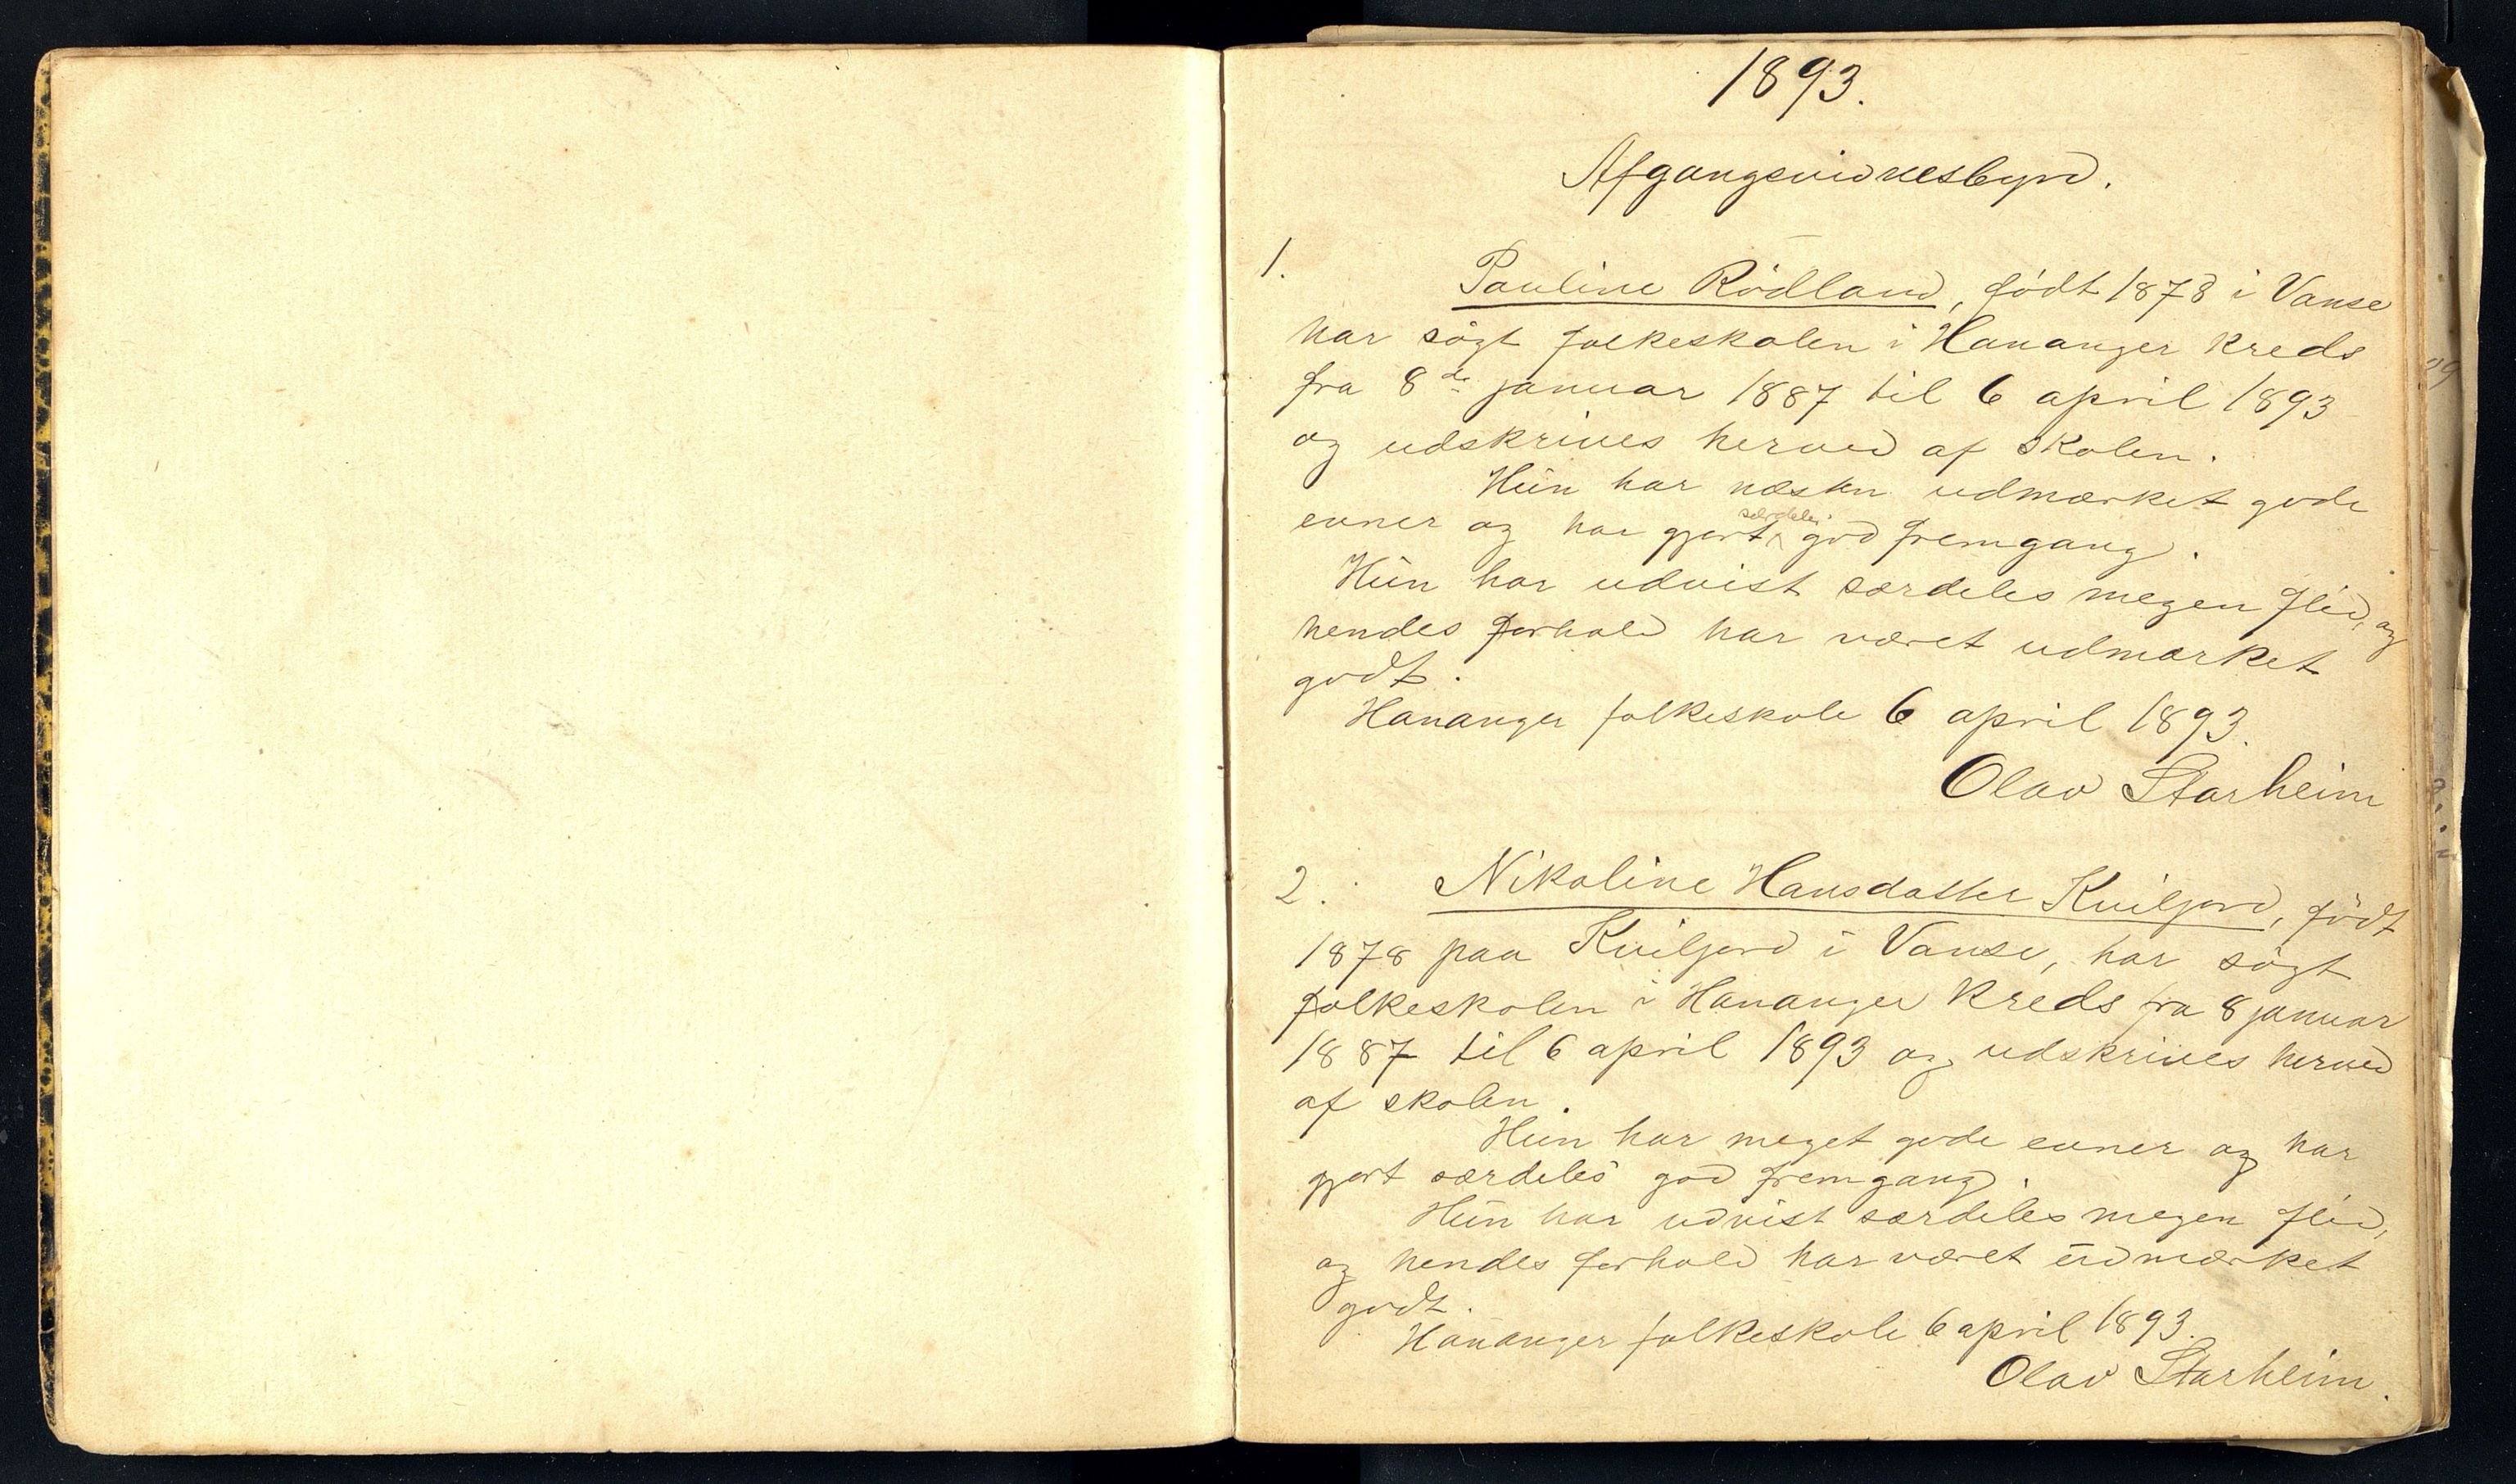 1893.
Afgangsvidnesbyrd.
1.
Pauline Rödland, födt 1878 i Vanse
har sögt folkeskolen i Hananger Kreds
fra 8de januar 1887 til 6 april 1893
og udskrives herved af skolen.
Hun har næsten udmærket gode
særdeles
evner og har gjort god fremgang.
Hun har udvist særdeles megen flid, og
hendes forhold har været udmærket
godt.
Hananger folkeskole 6 april 1893.
Olav Starheim
2. Nikoline Hansdatter Kviljord, födt
1878 paa Kviljord i Vanse, har sögt
folkeskolen i Hananger Kreds fra 8 januar
1887 til 6 april 1893 og udskrives herved
af skolen.
Hun har meget gode evner og har
gjort særdeles god fremgang.
Hun har udvist særdeles megen flid,
og hendes forhold har været udmærket
godt.
Hananger folkeskole 6 april 1893.
Olav Starheim.